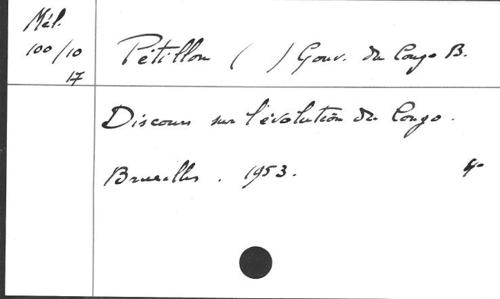 Mél.
100/10
17
Pétillon ( ) Gouv. du Congo B.
Discours sur l'évolution du Congo.
Bruxelles. 1953. 4°